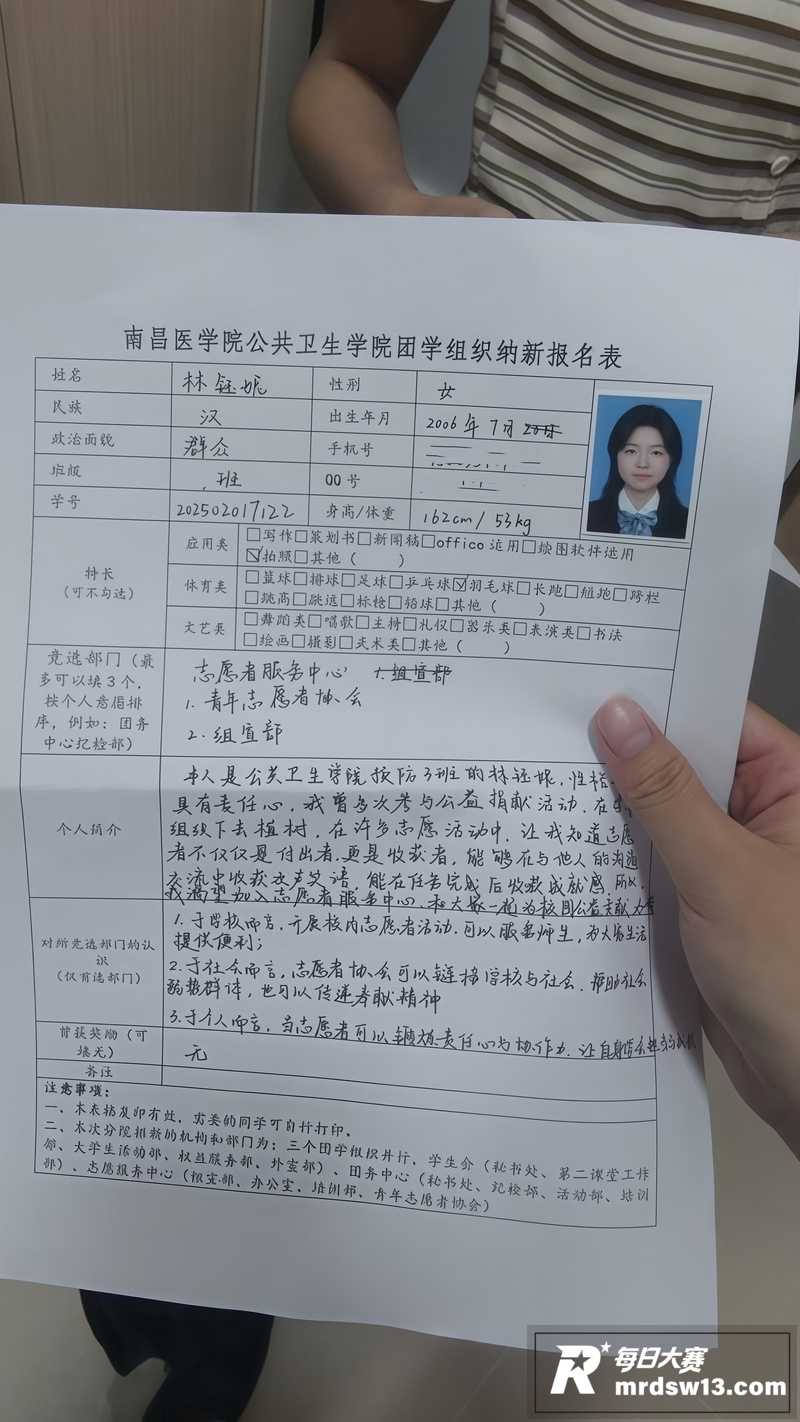 南昌医学院公共卫生学院团学组织纳新报名表
姓名 林钰妮 性别 女
民族 汉 出生年月 2006年7月
政治面貌 群众 手机号
班级 班 QQ号
学号 202502017122 身高/体重 162cm/53kg
特长
（可不勾选）
应用类 □写作□策划书□新闻稿□office运用□绘图软件运用
☑拍照□其他（ ）
体育类 □篮球□排球□足球□乒乓球☑羽毛球□长跑□短跑□跨栏
□跳高□跳远□标枪□铅球□其他（ ）
文艺类 □舞蹈类□唱歌□主持□礼仪□器乐类□表演类□书法
□绘画□摄影□武术类□其他（ ）
竞选部门（最
多可以填3个，
按个人意愿排
序，例如：团务
中心纪检部）
志愿者服务中心 1.组宣部
1.青年志愿者协会
2.组宣部
个人简介
本人是公共卫生学院预防3班的林钰妮，性格
具有责任心，我曾多次参与公益捐献活动，在
组织下去植树，在许多志愿活动中，让我知道志愿
者不仅仅是付出者，更是收获者，能够在与他人的沟通
交流中收获欢声笑语，能在任务完成后收获成就感，所以，
我渴望加入志愿者服务中心，和大家一起为校园公益贡献力量
对所竞选部门的认
识
（仅首选部门）
1.于学校而言，开展校内志愿者活动，可以服务师生，为大家生活
提供便利；
2.于社会而言，志愿者协会可以链接学校与社会，帮助社会
弱势群体，也可以传递奉献精神
3.于个人而言，当志愿者可以锻炼责任心与协作力，让自身
曾获奖励（可
填无）
无
备注
注意事项：
一、本表格复印有效，需要的同学可自行打印。
二、本次分院招新的机构和部门为：三个团学组织并行，学生会（秘书处、第二课堂工作
部、大学生活动部、权益服务部、外宣部）、团务中心（秘书处、纪检部、活动部、培训
部）、志愿服务中心（组宣部、办公室、培训部、青年志愿者协会）
每日大赛
mrdsw13.com